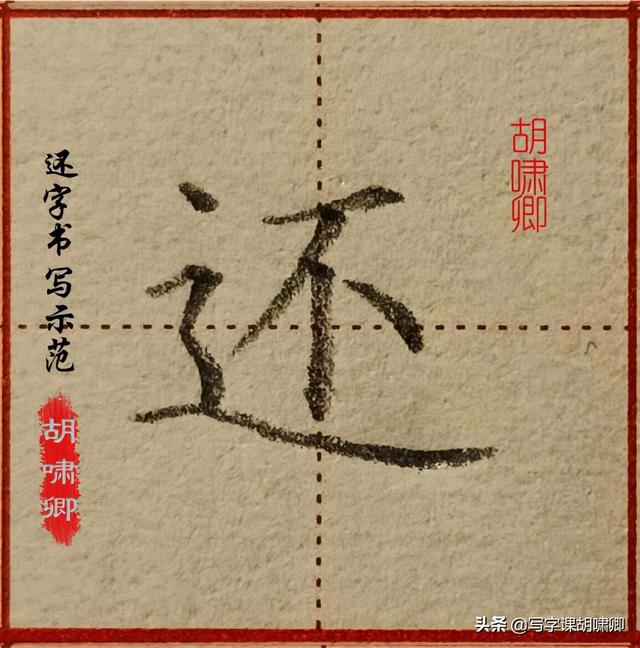 还字书写示范
胡啸卿
还
胡啸卿
头条 @写字课胡啸卿